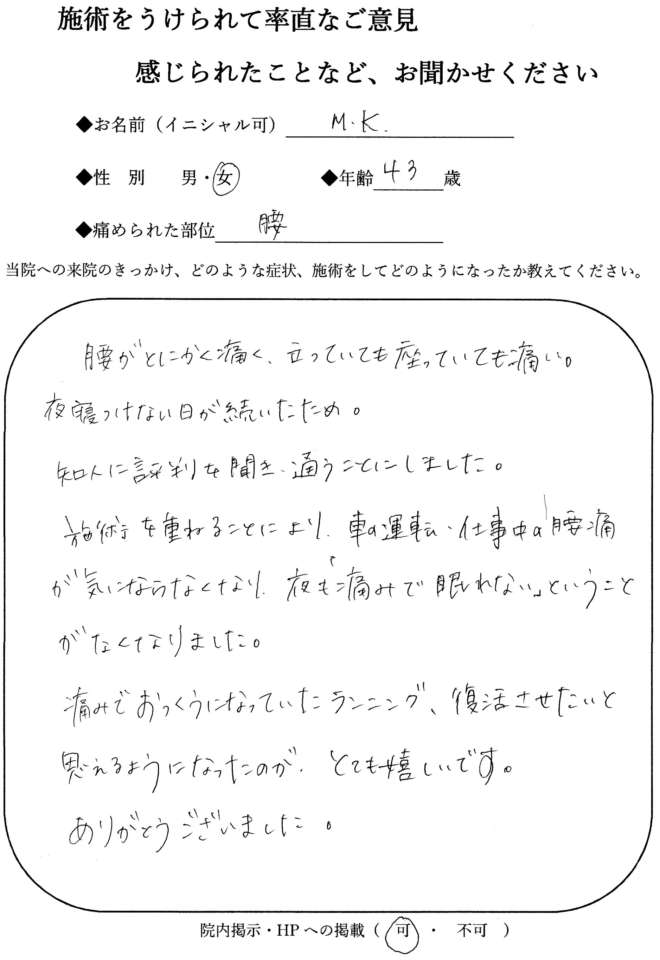 施術をうけられて率直なご意見
感じられたことなど、お聞かせください
◆お名前（イニシャル可） M.K.
◆性　別　　男・女　　◆年齢 43 歳
◆痛められた部位 腰
当院への来院のきっかけ、どのような症状、施術をしてどのようになったか教えてください。
腰がとにかく痛く、立っていても座っていても痛い。
夜寝つけない日が続いたため。
知人に評判を聞き、通うことにしました。
施術を重ねることにより、車の運転・仕事中の腰痛
が気にならなくなり、夜も「痛みで眠れない」ということ
がなくなりました。
痛みでおっくうになっていたランニング、復活させたいと
思えるようになったのが、とても嬉しいです。
ありがとうございました。
院内掲示・HPへの掲載（ 可 ・ 不可 ）